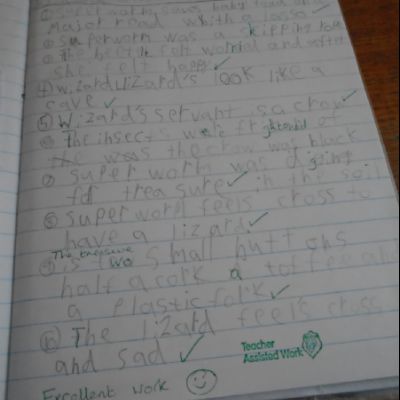 ① superworm saves baby toad on a
Major road with a lasso
② superworm was a skipping rope
③ The beetle felt worried and after
she felt happy
④ wizard lizard's look like a
cave
⑤ Wizard's servant is a crow
⑥ The insects were frightened of
the crow was black
⑦ super worm was digging
for treasure in the soil
⑧ superworm feels cross to
have a lizard
⑨ The treasure is two small buttons
half a cork a toffee and
a plastic fork
⑩ The lizard feels cross
and sad
Teacher
Assisted Work
Excellent work